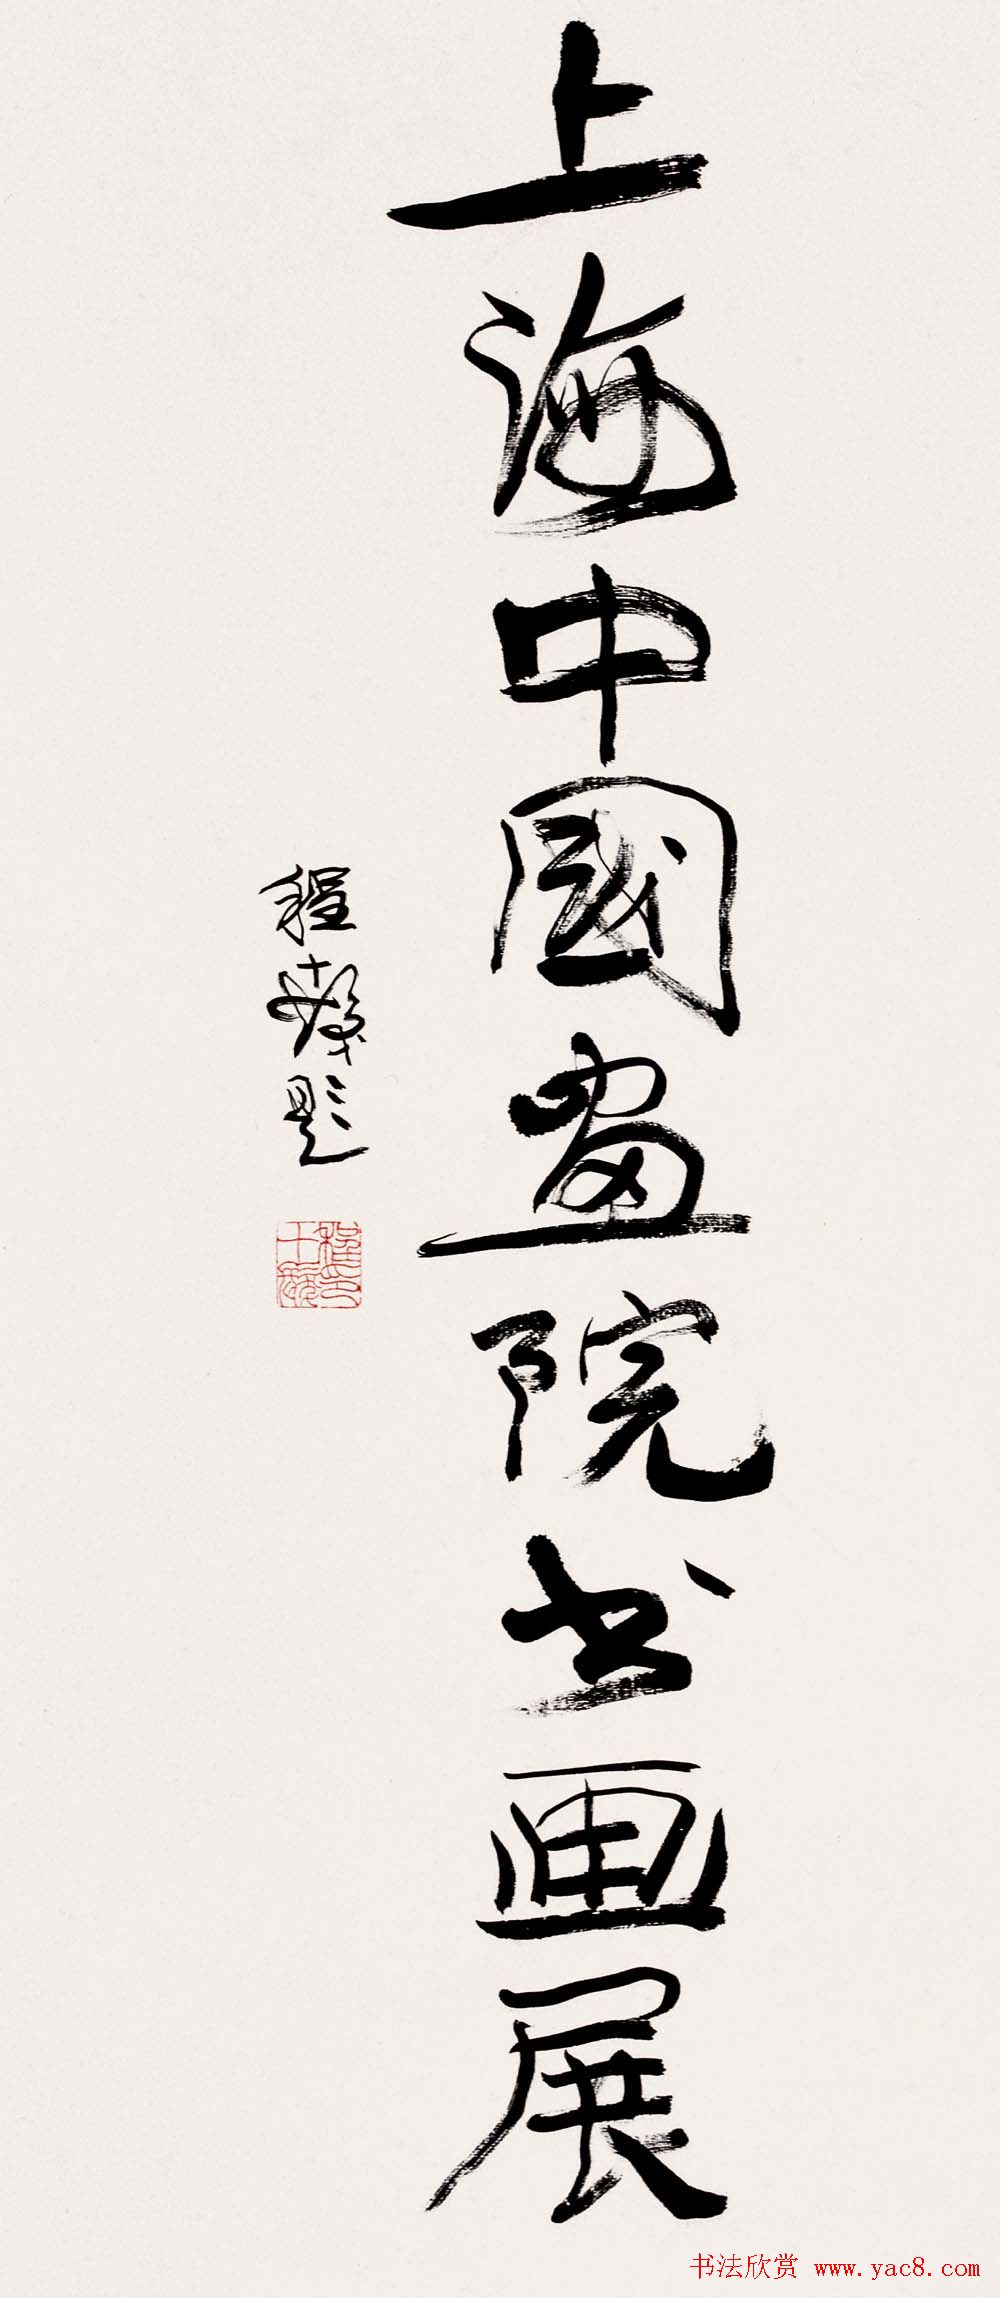 上海中國畫院书画展
程十髮题
程十髮印
书法欣赏 www.yac8.com